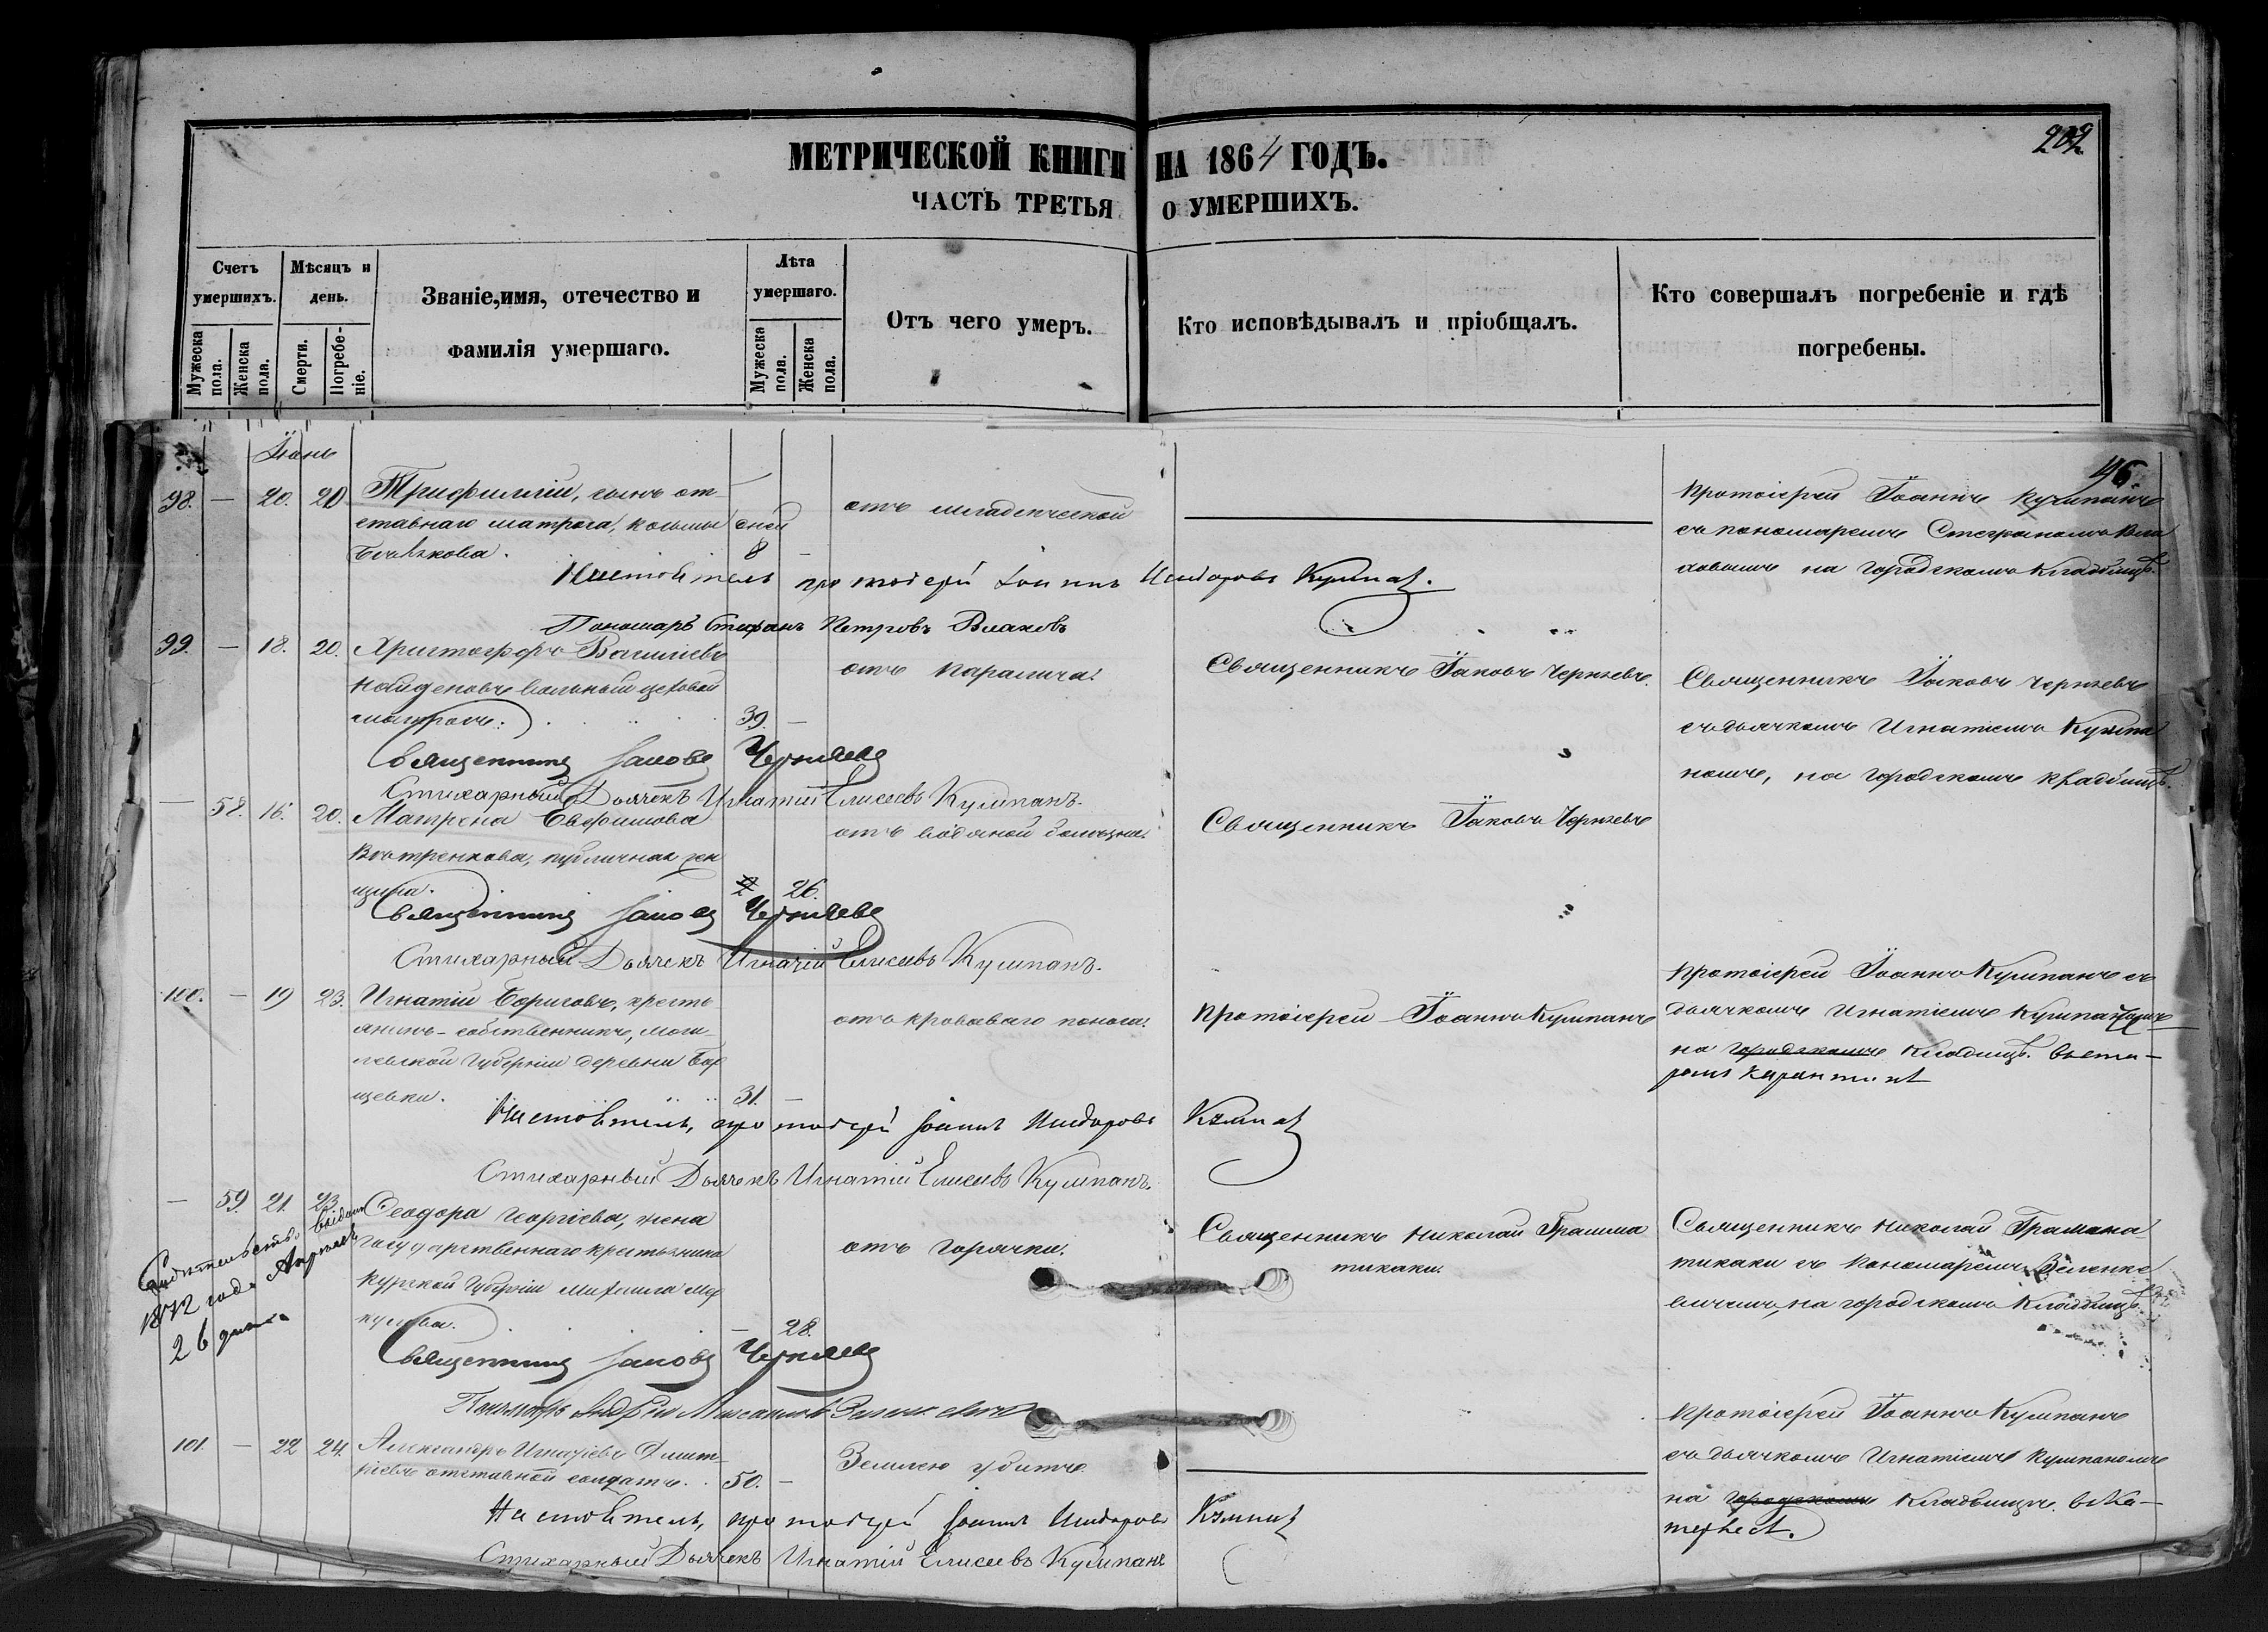 202
МЕТРИЧЕСКОЙ КНИГИ НА 1864 ГОДЪ.
ЧАСТЬ ТРЕТЬЯ О УМЕРШИХЪ.
Счетъ умершихъ.
Мужеска пола.
Женска пола.
Мѣсяцъ и день.
Смерти.
Погребеніе.
Званіе, имя, отечество и
фамилія умершаго.
Лѣта умершаго.
Мужеска пола.
Женска пола.
Отъ чего умеръ.
Кто исповѣдывалъ и пріобщалъ.
Кто совершалъ погребеніе и гдѣ
погребены.
46
Іюнь
98. — 20. 20
Трифиллій, сынъ от-
ставнаго матроса, Косьмы
дней
8 —
отъ младенческой
Протоіерей Іоаннъ Кумпанъ
съ пономаремъ Стефаномъ Вла
ховымъ на городскомъ кладбищѣ.
Настоятель протоіерей Іоаннъ Исидоровъ Кумпан.
Пономарь Стефанъ Петровъ Влаховъ
99. — 18. 20.
Христофоръ Васильевъ
Найденовъ вольный цеховой
матросъ.
39. —
отъ паралича.
Священникъ Іаковъ Черняевъ.
Священникъ Іаковъ Черняевъ
съ дьячкомъ Игнатіемъ Кумпа
номъ, на городскомъ кладбищѣ.
Священникъ Іаковъ Черняевъ
Стихарный Дьячекъ Игнатій Елисеевъ Кумпанъ.
— 58. 16. 20.
Матрена Евфимова
Вострикова, публичная жен
щина.
26.
отъ водяной болѣзни.
Священникъ Іаковъ Черняевъ
Священникъ Іаковъ Черняевъ
Стихарный Дьячекъ Игнатій Елисеевъ Кумпанъ.
100. — 19 23.
Игнатій Борисовъ, кресть
янинъ-собственникъ, Моги
левской Губерніи деревни Бор
щевки.
31. —
отъ кроваваго поноса.
Протоіерей Іоаннъ Кумпанъ
Протоіерей Іоаннъ Кумпанъ съ
дьячкомъ Игнатіемъ Кумпаномъ
на городскомъ кладбищѣ. въ ста-
ромъ карантинѣ
Настоятель, протоіерей Іоаннъ Исидоровъ Кумпан
Стихарный Дьячекъ Игнатій Елисеевъ Кумпанъ.
— 59. 21. 23.
Ѳеодора Георгіева, жена
Государственнаго крестьянина
Курской Губерніи Михаила
28.
отъ горячки.
Священникъ Николай Грамма
тикаки.
Священникъ Николай Грамма
тикаки съ пономаремъ Зеленке
вичемъ, на городскомъ кладбищѣ.
Свидѣтельство выдано
1872 года Апрѣля
26 дня
Священникъ Іаковъ Черняевъ
Пономарь Андрей Зеленкевичъ
101. — 22 24.
Александръ Игнатіевъ Дмит-
ріевъ отставной солдатъ.
50. —
Землею убитъ
Протоіерей Іоаннъ Кумпанъ
съ дьячкомъ Игнатіемъ Кумпаномъ
на городскомъ кладбищѣ. въ Ка-
терлесѣ.
Настоятель, протоіерей Іоаннъ Исидоровъ Кумпан
Стихарный Дьячекъ Игнатій Елисеевъ Кумпанъ